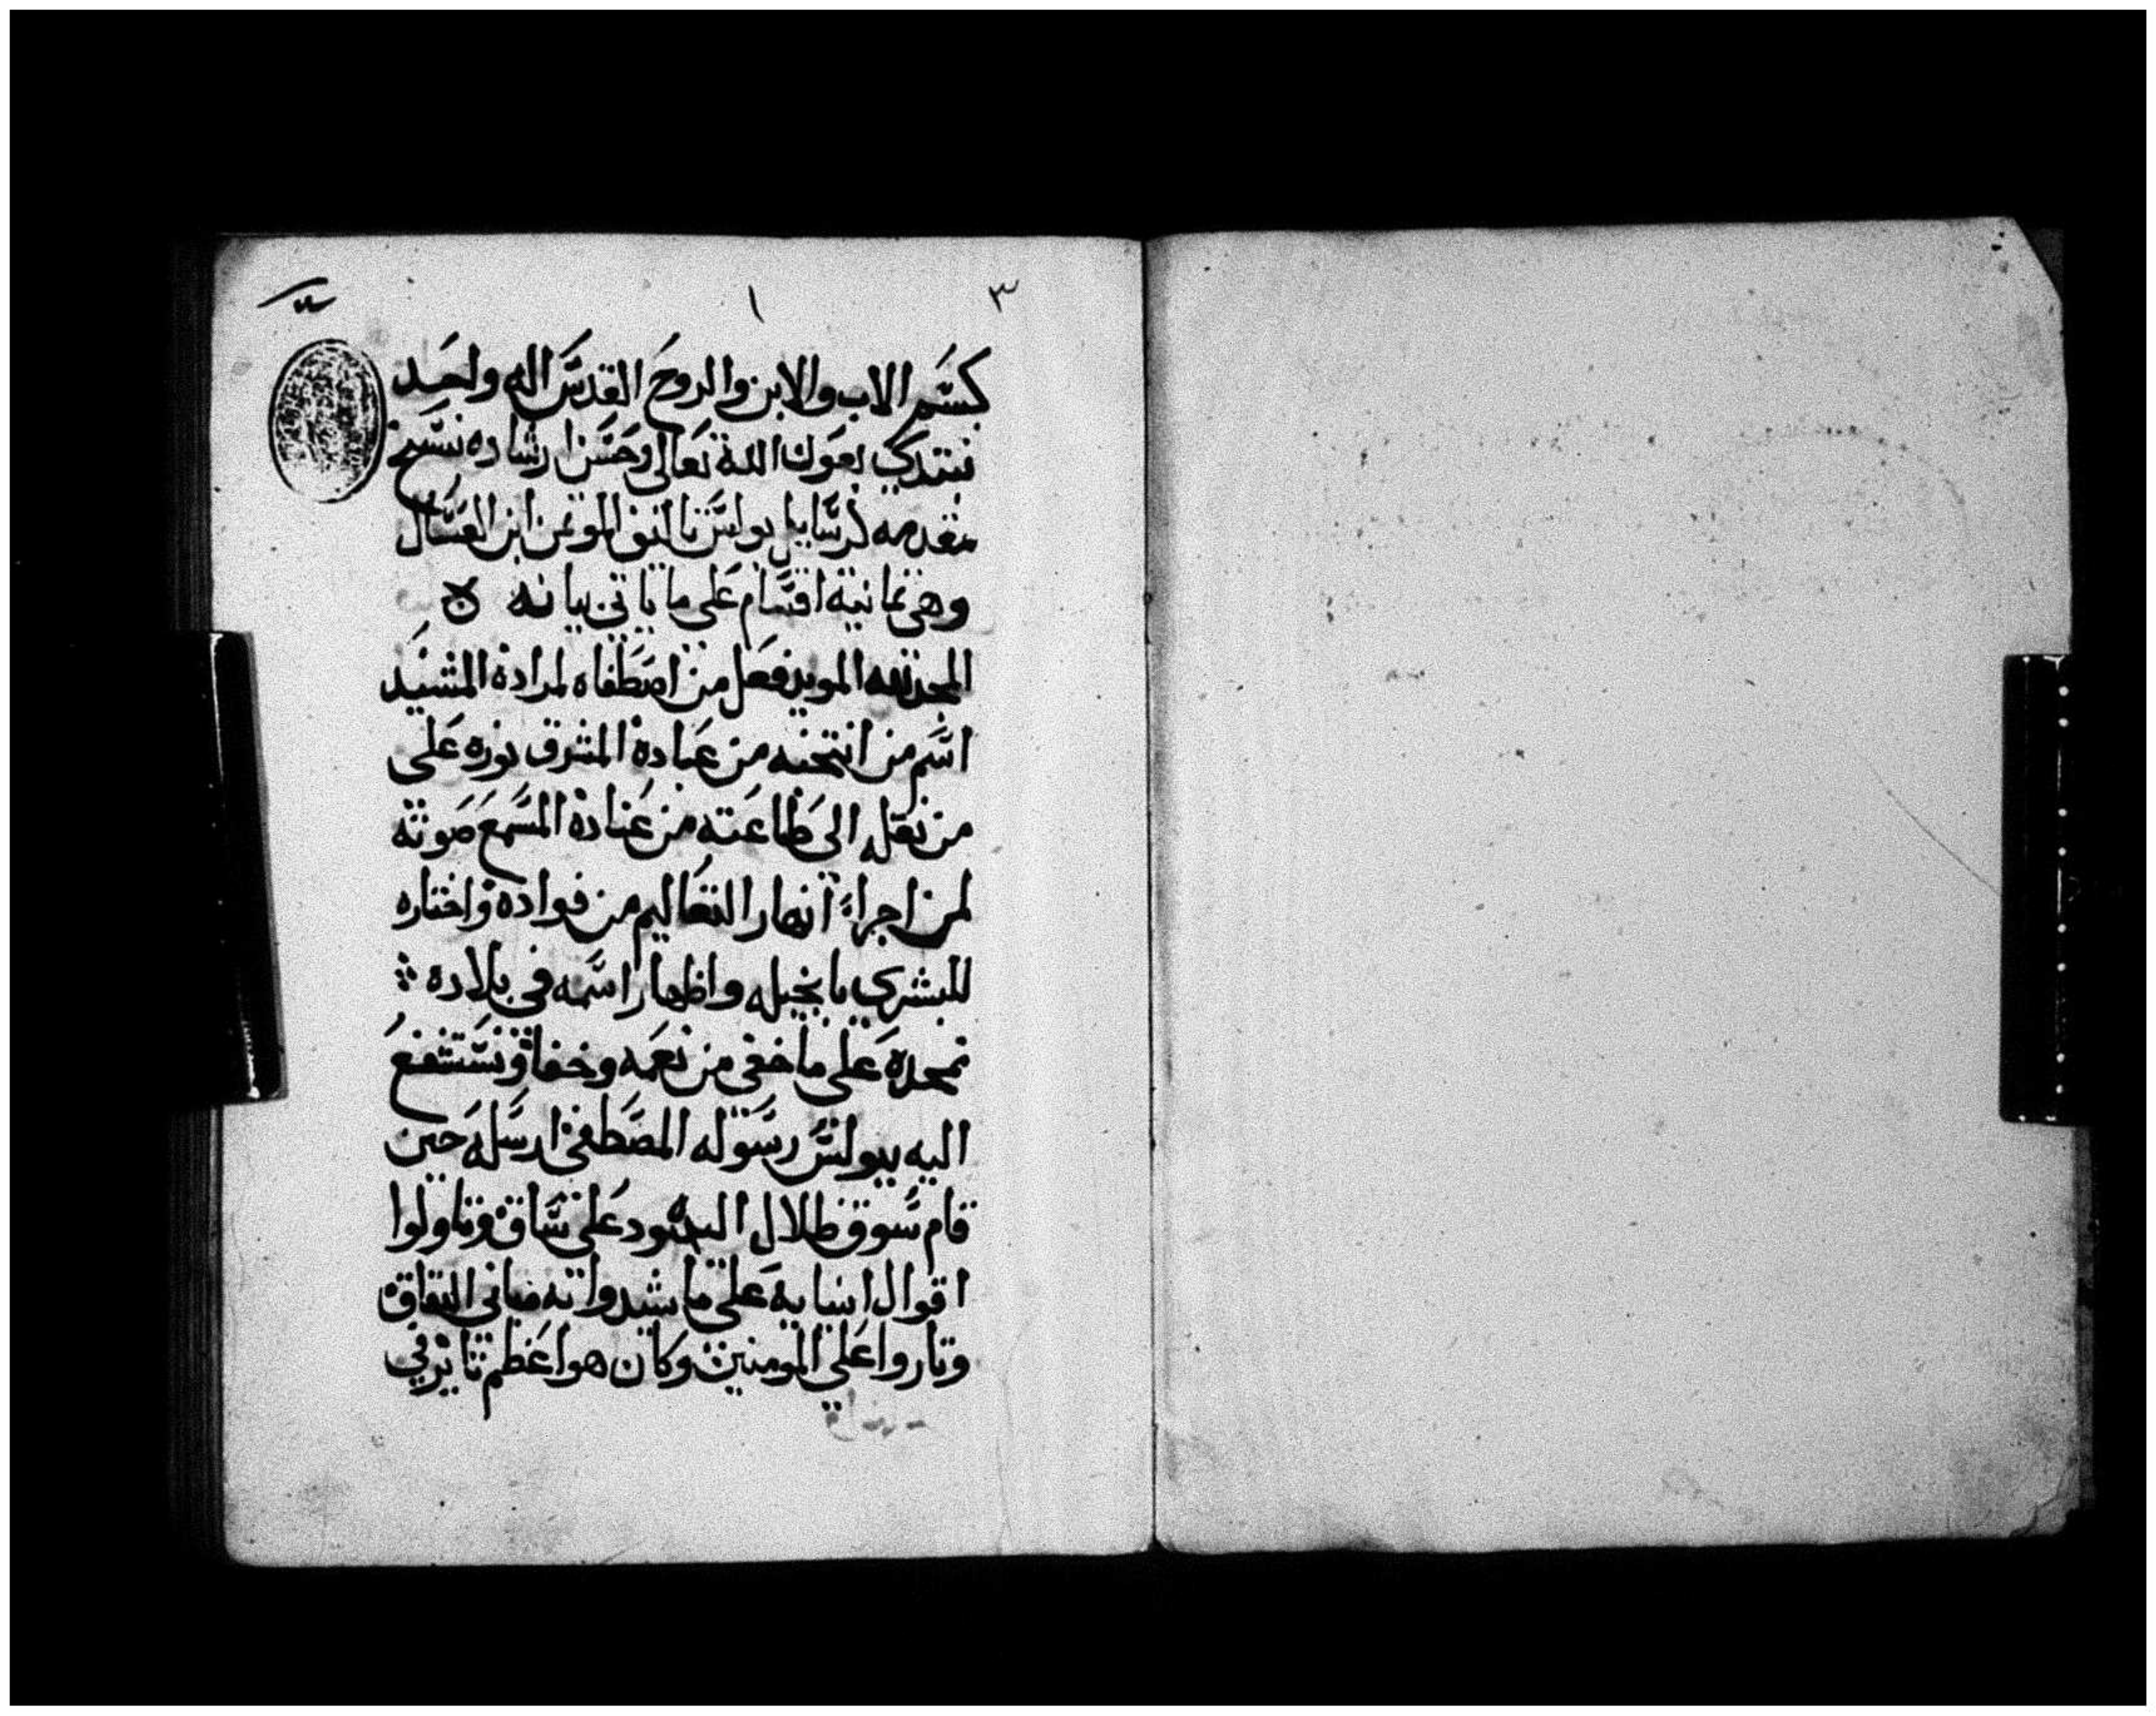 ٣
١
بسم الاب والابن والروح القدس اله واحد
نبتدي بعون الله تعالى وحسن ارشاده نسخ
مقدمه لرسايل بولس تاليف الموتمن ابن العسال
وهي ثمانية اقسام على ما ياتي بيانه
المجد لله المويد فعل من اصطفاه لمراده المشيد
اسم من انتخبه من عباده المشرق نوره على
من نقله الي طاعته من عناده المسمع صوته
لمن اجراء انهار التعاليم من فواده واختاره
للبشري بانجيله واظهار اسمه في بلاده
نمجده على ما خفي من نعمه وخفا ونستشفع
اليه ببولس رسوله المصطفى ارسله حين
قام سوق ضلال اليهود على ساق وتاولوا
اقوال انبيايه على ما شيدوا به مباني النفاق
وثاروا على المومنين وكان هو اعظم تاثير في